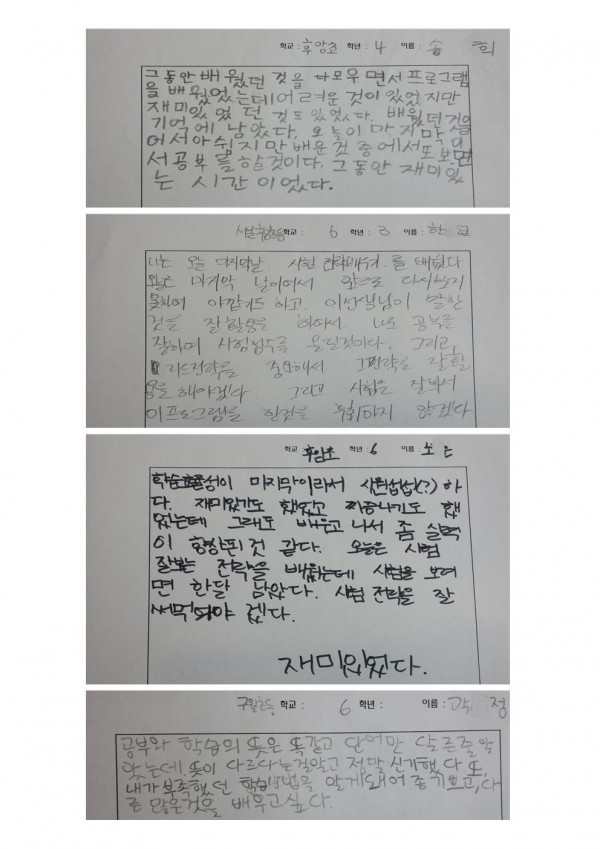 학교: 후암초 학년: 4 이름: 송 희
그동안 배웠던 것을 다모우면서프로그램
을 배웠었는데어려운 것이 있었지만
재미있었던 것도 있었다. 배웠던것을
기억에 남았다. 오늘이 마지막
어서아쉽지만배운것 중에서또보면
서공부를 하할것이다. 그동안 재미있
는 시간이었다.
학교: 6 학년: 3 이름: 한
나는 오늘 마지막날 시험 전략 를 배웠다
오늘은 마지막 날이어서 앞으로 다시
못하여 아깝기도 하고, 이선생님이 말한
것을 잘 활용을 하여서 나도 공부를
잘하며 시험점수를 올릴것이다. 그리고
전략을 중요해서 그전략을 잘활
용을해야겠다. 그리고 시험은 잘봐서
이프로그램을 한것을 후회하지 않겠다
학교: 후암초 학년: 6 이름: 소 은
학습 이 마지막이라서 시원섭섭(?)하
다. 재미있기도 했었고 짜증나기도 했
었는데 그래도 배우고 나서 좀 실력
이 향상된 것 같다. 오늘은 시험
잘보는 전략을 배웠는데 시험을 보려
면 한달 남았다. 시험 전략을 잘
써먹 야 겠다.
재미있었다.
학교: 6 학년: 이름: 곽 정
공부와 학습의 뜻은 똑같고 단어만 다른줄알
았는데, 뜻이 다르다는걸알고 정말 신기했다. 또,
내가 부족했던 학습방법을 알게돼어 기쁘고, 다
른 많은것을 배우고싶다.